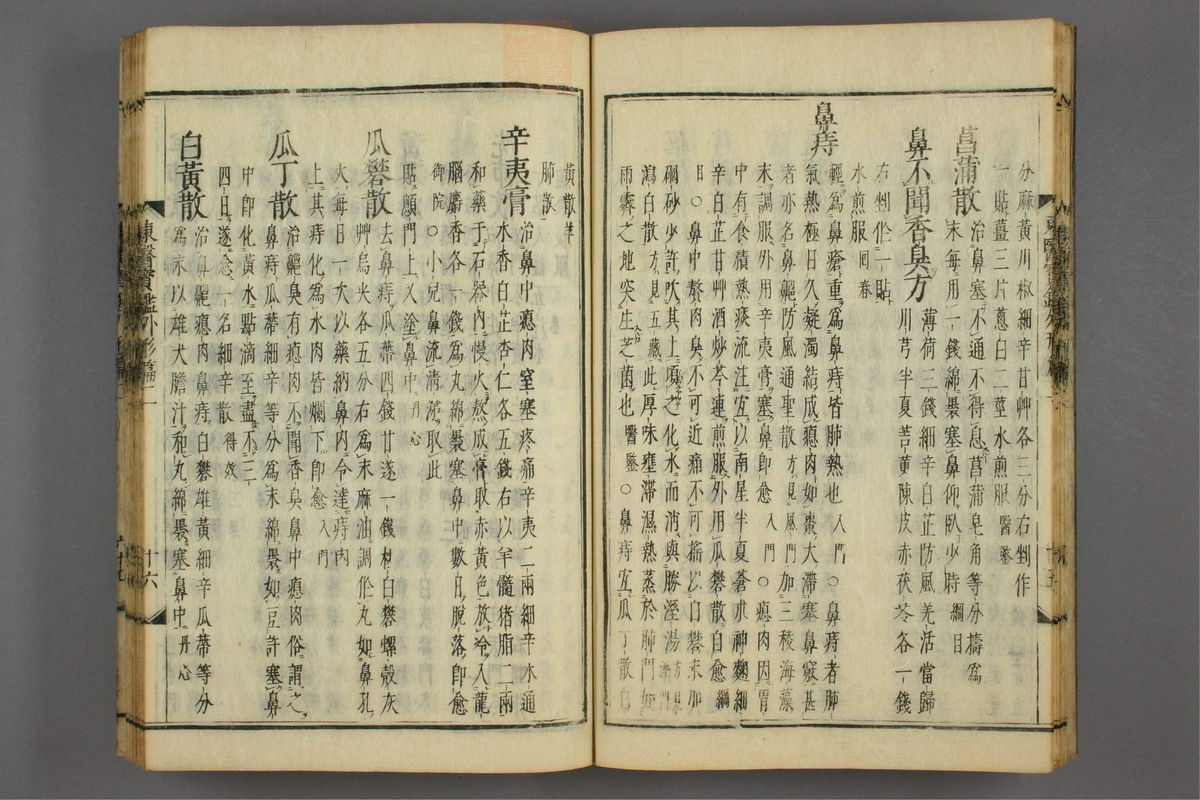 分麻黃川椒細辛甘艸各三分右剉作
一貼薑三片蔥白二莖水煎服 醫鑒
菖蒲散 治鼻塞不通不得息菖蒲皂角等分擣爲
末每用一錢綿褁塞鼻仰臥少時 綱目
鼻不聞香臭方 薄荷三錢細辛白芷防風羌活當歸
川芎半夏荅黃陳皮赤茯苓各一錢
右剉作一貼
水煎服 回春
鼻痔 輕爲鼻瘡重爲鼻痔皆肺熱也 入門 ○鼻痔者肺
氣熱極日久凝濁結成瘜肉如棗大滯塞鼻竅甚
者亦名鼻齆防風通聖散 方見風門 加三稜海藻
末調服外用辛夷膏塞鼻卽愈 入門 ○瘜肉因胃
中有食積熱痰流注宜以南星半夏蒼朮神麴細
辛白芷甘艸酒炒芩連煎服外用瓜礬散自愈 綱
目 ○鼻中瘜肉臭不可近痛不可搖以白礬末加
硇砂少許吹其上頃之化水而消與勝溼湯 方見濕門
瀉白散 方見五藏 此厚味壅滯濕熱蒸於肺門如
雨霽之地突生芝菌也 醫鑒 ○鼻痔宜瓜丁散白
黃散 羊
肺散
辛夷膏 治鼻中瘜肉窒塞疼痛辛夷二兩細辛木通
木香白芷杏仁各五錢右以羊髓猪脂二兩
和藥于石器內慢火熬成膏取赤黃色放冷入龍
腦麝香各一錢爲丸綿褁塞鼻中數日脫落卽愈
御院 ○小兒鼻流淸涕取此
貼顖門上又塗鼻中 丹心
瓜礬散 去鼻痔瓜蒂四錢甘遂一錢枯白礬螺殼灰
艸烏尖各五分右爲末麻油調作丸如鼻孔
大每日一次以藥納鼻內令達痔肉
上其痔化爲水肉皆爛下卽愈 入門
瓜丁散 治齆臭有瘜肉不聞香臭鼻中瘜肉俗謂之
鼻痔瓜蒂細辛等分爲末綿褁如豆許塞鼻
中卽化黃水點滴至盡不三
四日遂愈一名細辛散 得效
白黃散 治鼻齆瘜肉鼻痔白礬雄黃細辛瓜蒂等分
爲末以雄犬膽汁和丸綿褁塞鼻中 丹心
東醫寶鑑外形篇二
十六